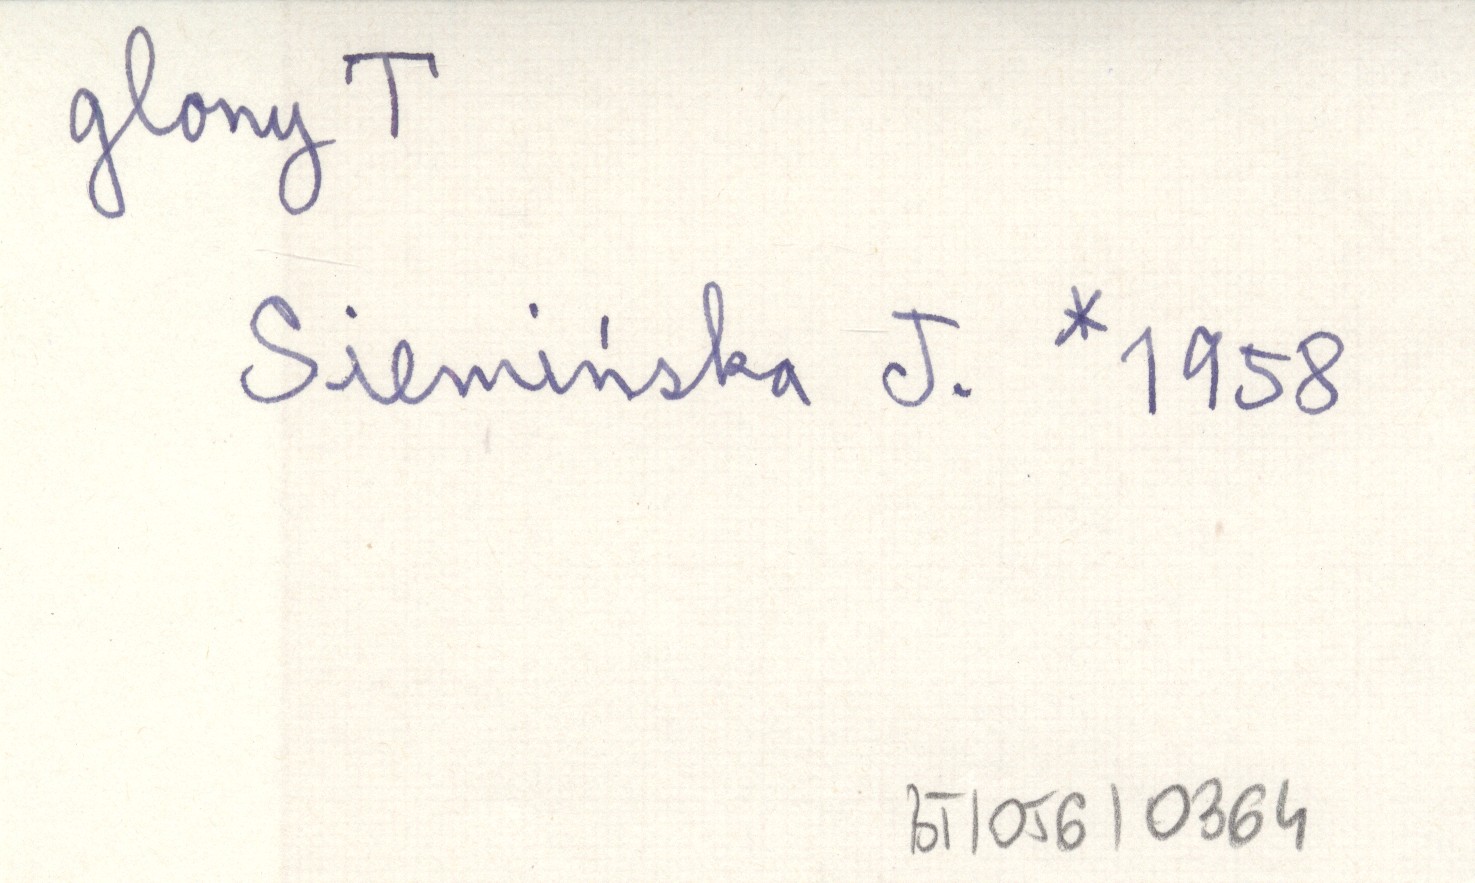 glony T
Siemińska J. *1958
BT/056/0364